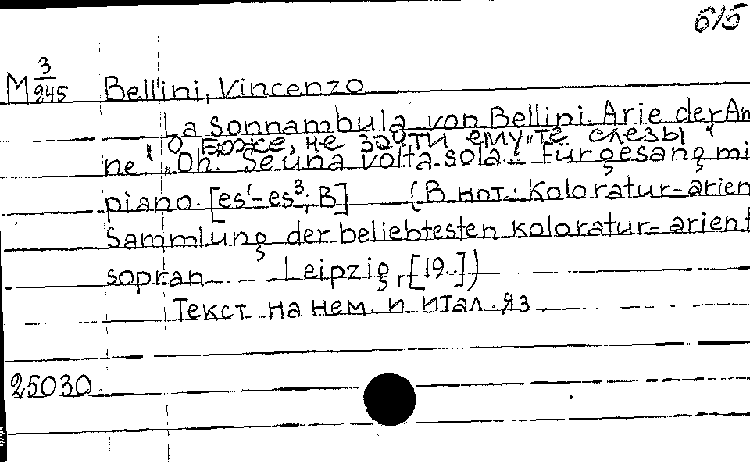 615
M 3/945 Bellini, Vincenzo
La Sonnambula von Bellini. Arie der Am
О Боже, не зачти ему те слезы
ne "Oh. Se una volta sola". Für gesang mi
piano. [es¹-es³; B] (В нот.: Koloratur-arien
Sammlung der beliebtesten koloratur-arien f
sopran Leipzig, [19..])
Текст на нем. и итал. яз.
25030